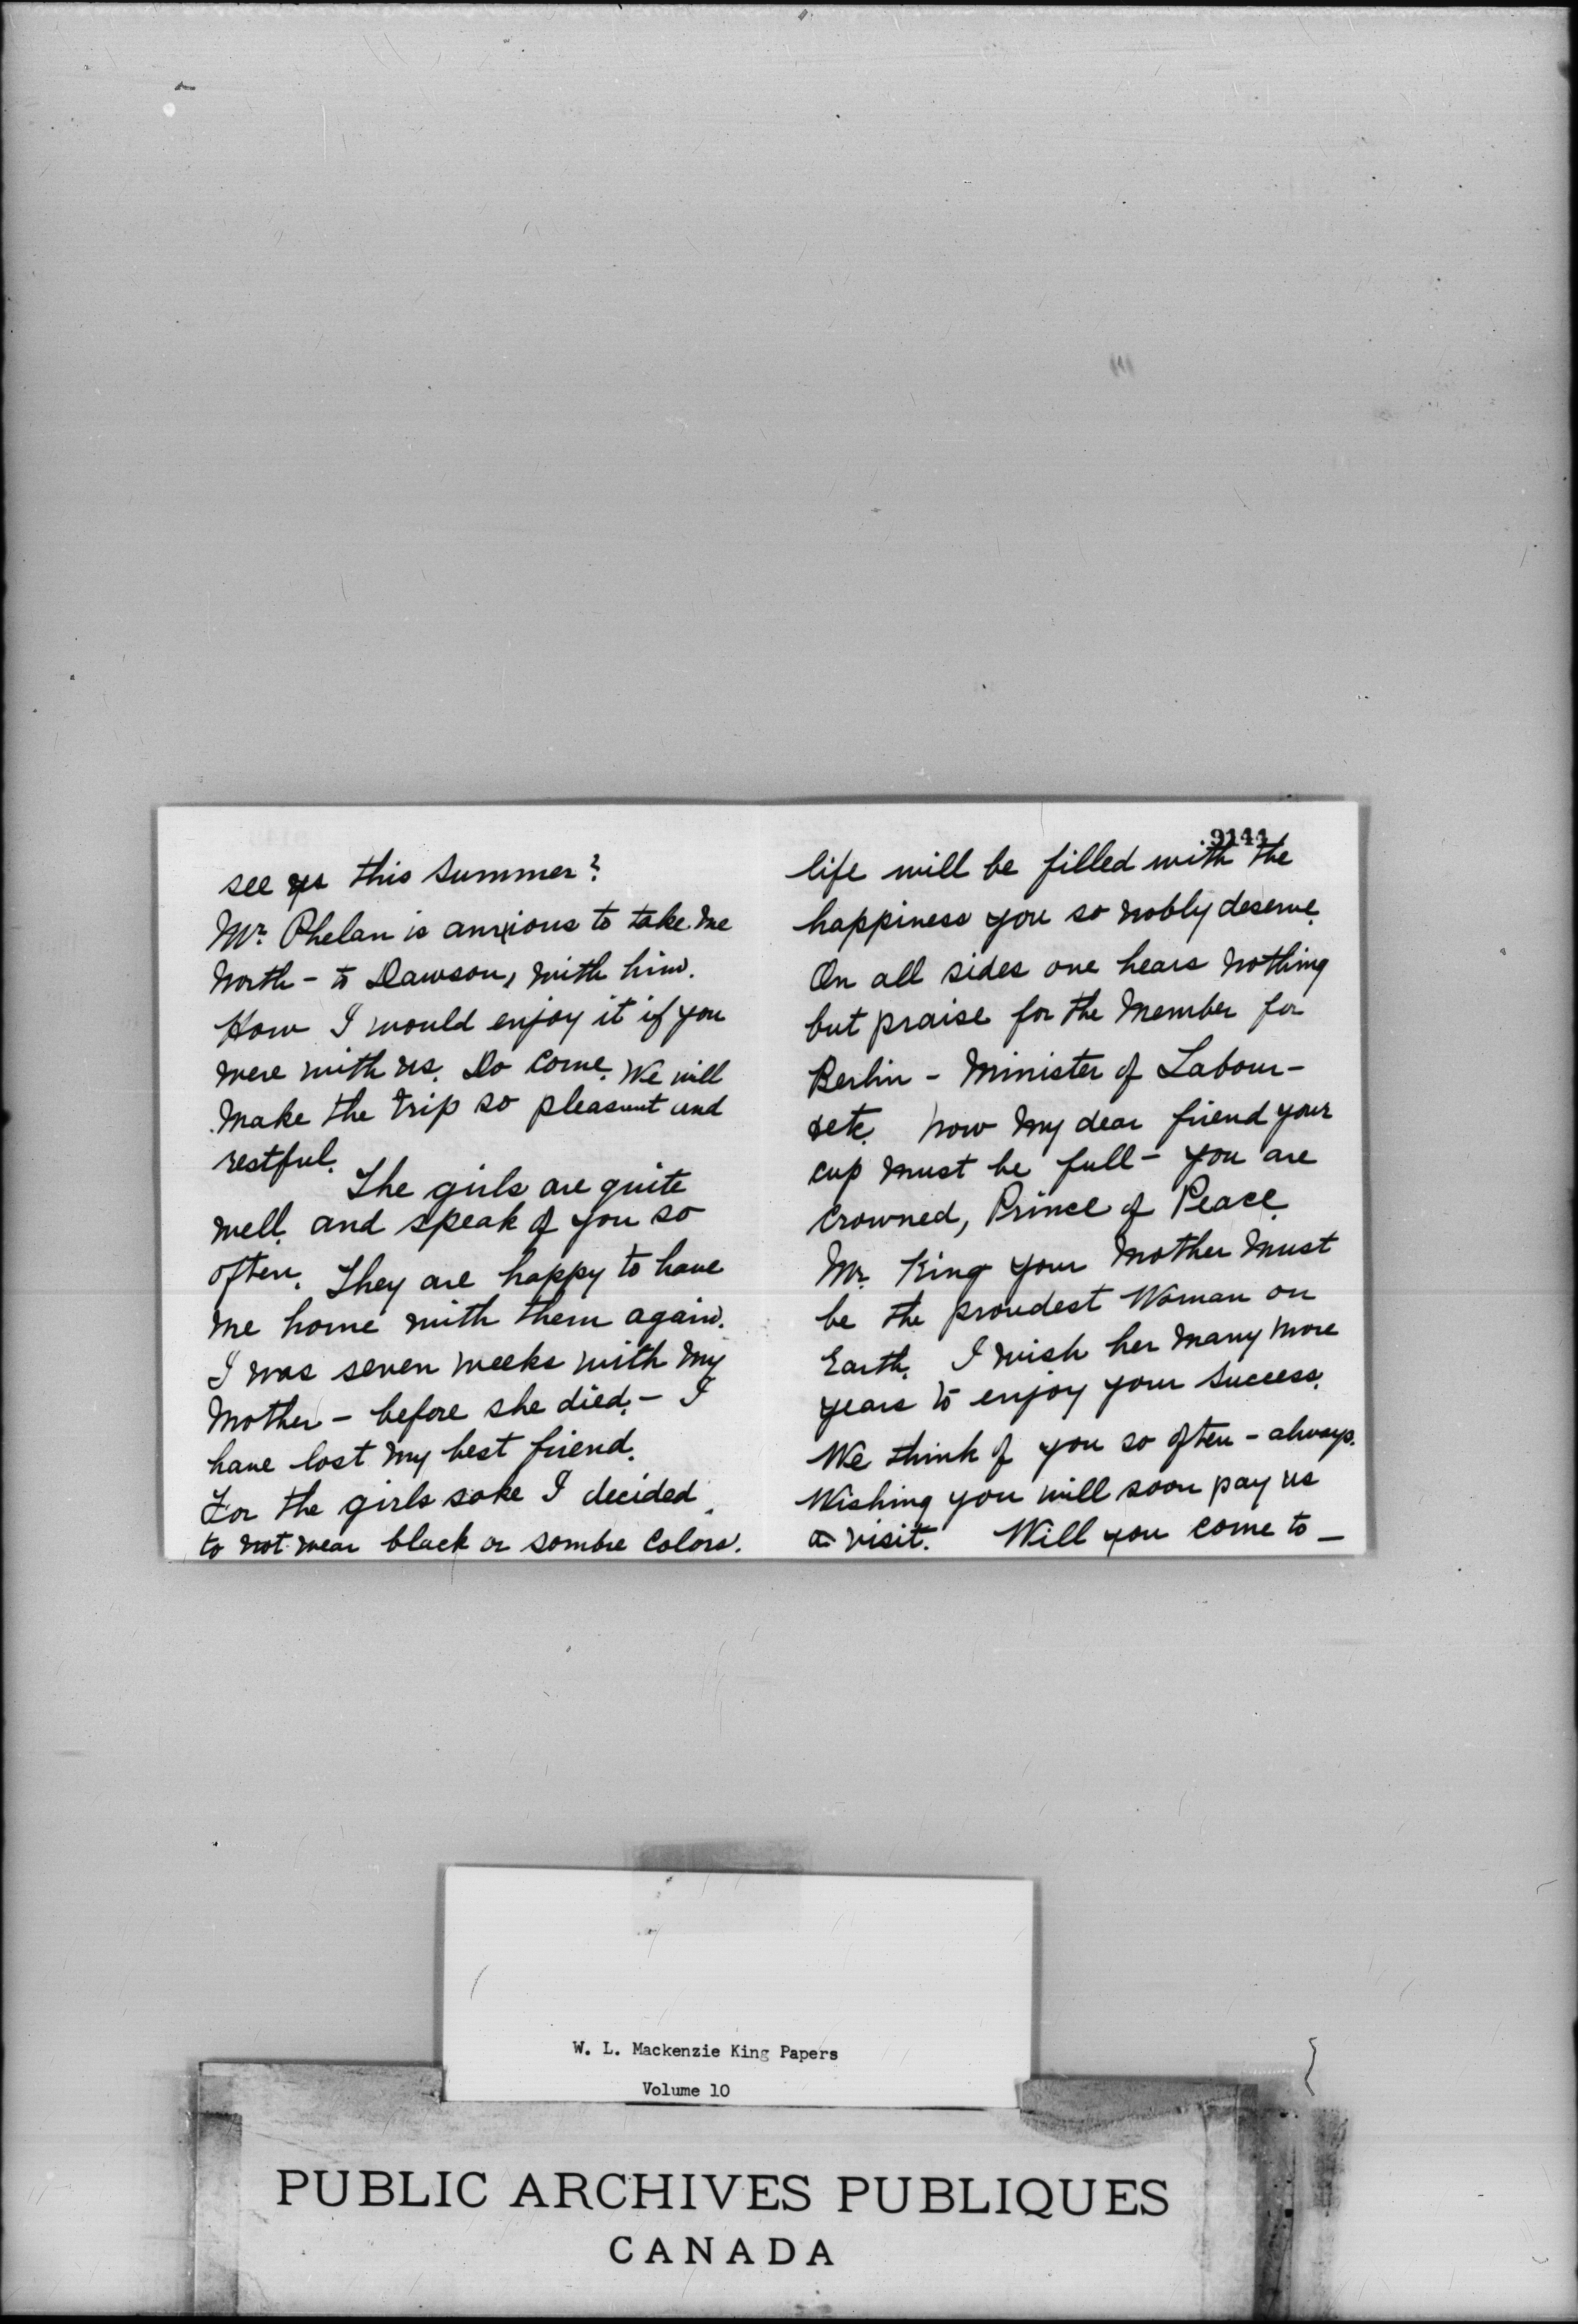 see us this summer?
Mr. Phelan is anxious to take me
North - to Dawson, with him.
How I would enjoy it if you
were with us. Do come. We will
make the trip so pleasant and
restful.
The girls are quite
well. and speak of you so
often. They are happy to have
me home with them again.
I was seven weeks with my
Mother - before she died. - I
have lost my best friend.
For the girls sake I decided
to not wear black or sombre colors.
9144
life will be filled with the
happiness you so nobly deserve.
On all sides one hears nothing
but praise for the Member for
Berlin - Minister of Labour -
etc. Now my dear friend your
cup must be full - you are
crowned, Prince of Peace.
Mr. King your Mother must
be the proudest Woman on
Earth. I wish her many more
years to enjoy your success.
We think of you so often - always.
Wishing you will soon pay us
a visit. Will you come to -
W. L. Mackenzie King Papers
Volume 10
PUBLIC ARCHIVES PUBLIQUES
CANADA